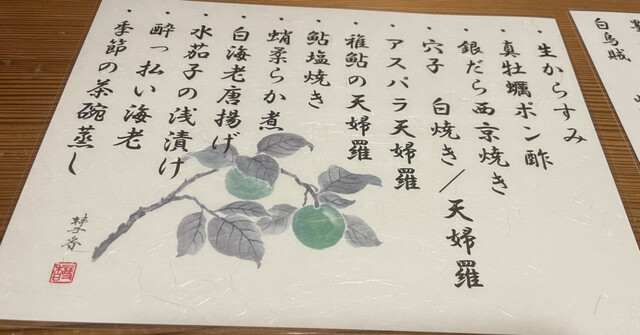 ・生からすみ
・真牡蠣ポン酢
・銀だら西京焼き
・穴子 白焼き/天婦羅
・アスパラ天婦羅
・稚鮎の天婦羅
・鮎塩焼き
・蛸柔らか煮
・白海老唐揚げ
・水茄子の浅漬け
・酔っ払い海老
・季節の茶碗蒸し
白烏賊